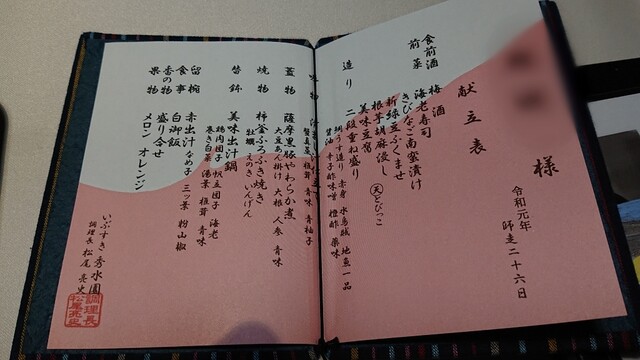 様
令和元年 師走二十六日
献立表
食前酒 梅酒
前菜 海老寿司
きびなご南蛮漬け
新緑豆ふくませ
根芋胡麻浸し 天とびっこ
美味豆富
造り 二段重ね盛り
鯛うす造り 赤身 水烏賊 地魚一品
醤油 辛子酢味噌 橙酢 薬味
蓋物 薩摩黒豚やわらか煮
大豆あん掛け 大根 人参 青味
焼物 柿釜ふつふつ焼き
牡蠣 えのき いんげん
替鉢 美味出汁鍋
鶏肉団子 帆立団子 海老
巻き白菜 湯葉 椎茸 青味
留椀 赤出汁 なめ子 三ツ葉 粉山椒
食事 白御飯
香の物 盛り合せ
果物 メロン オレンジ
いぶすき秀水園
調理長 松尾
調理長